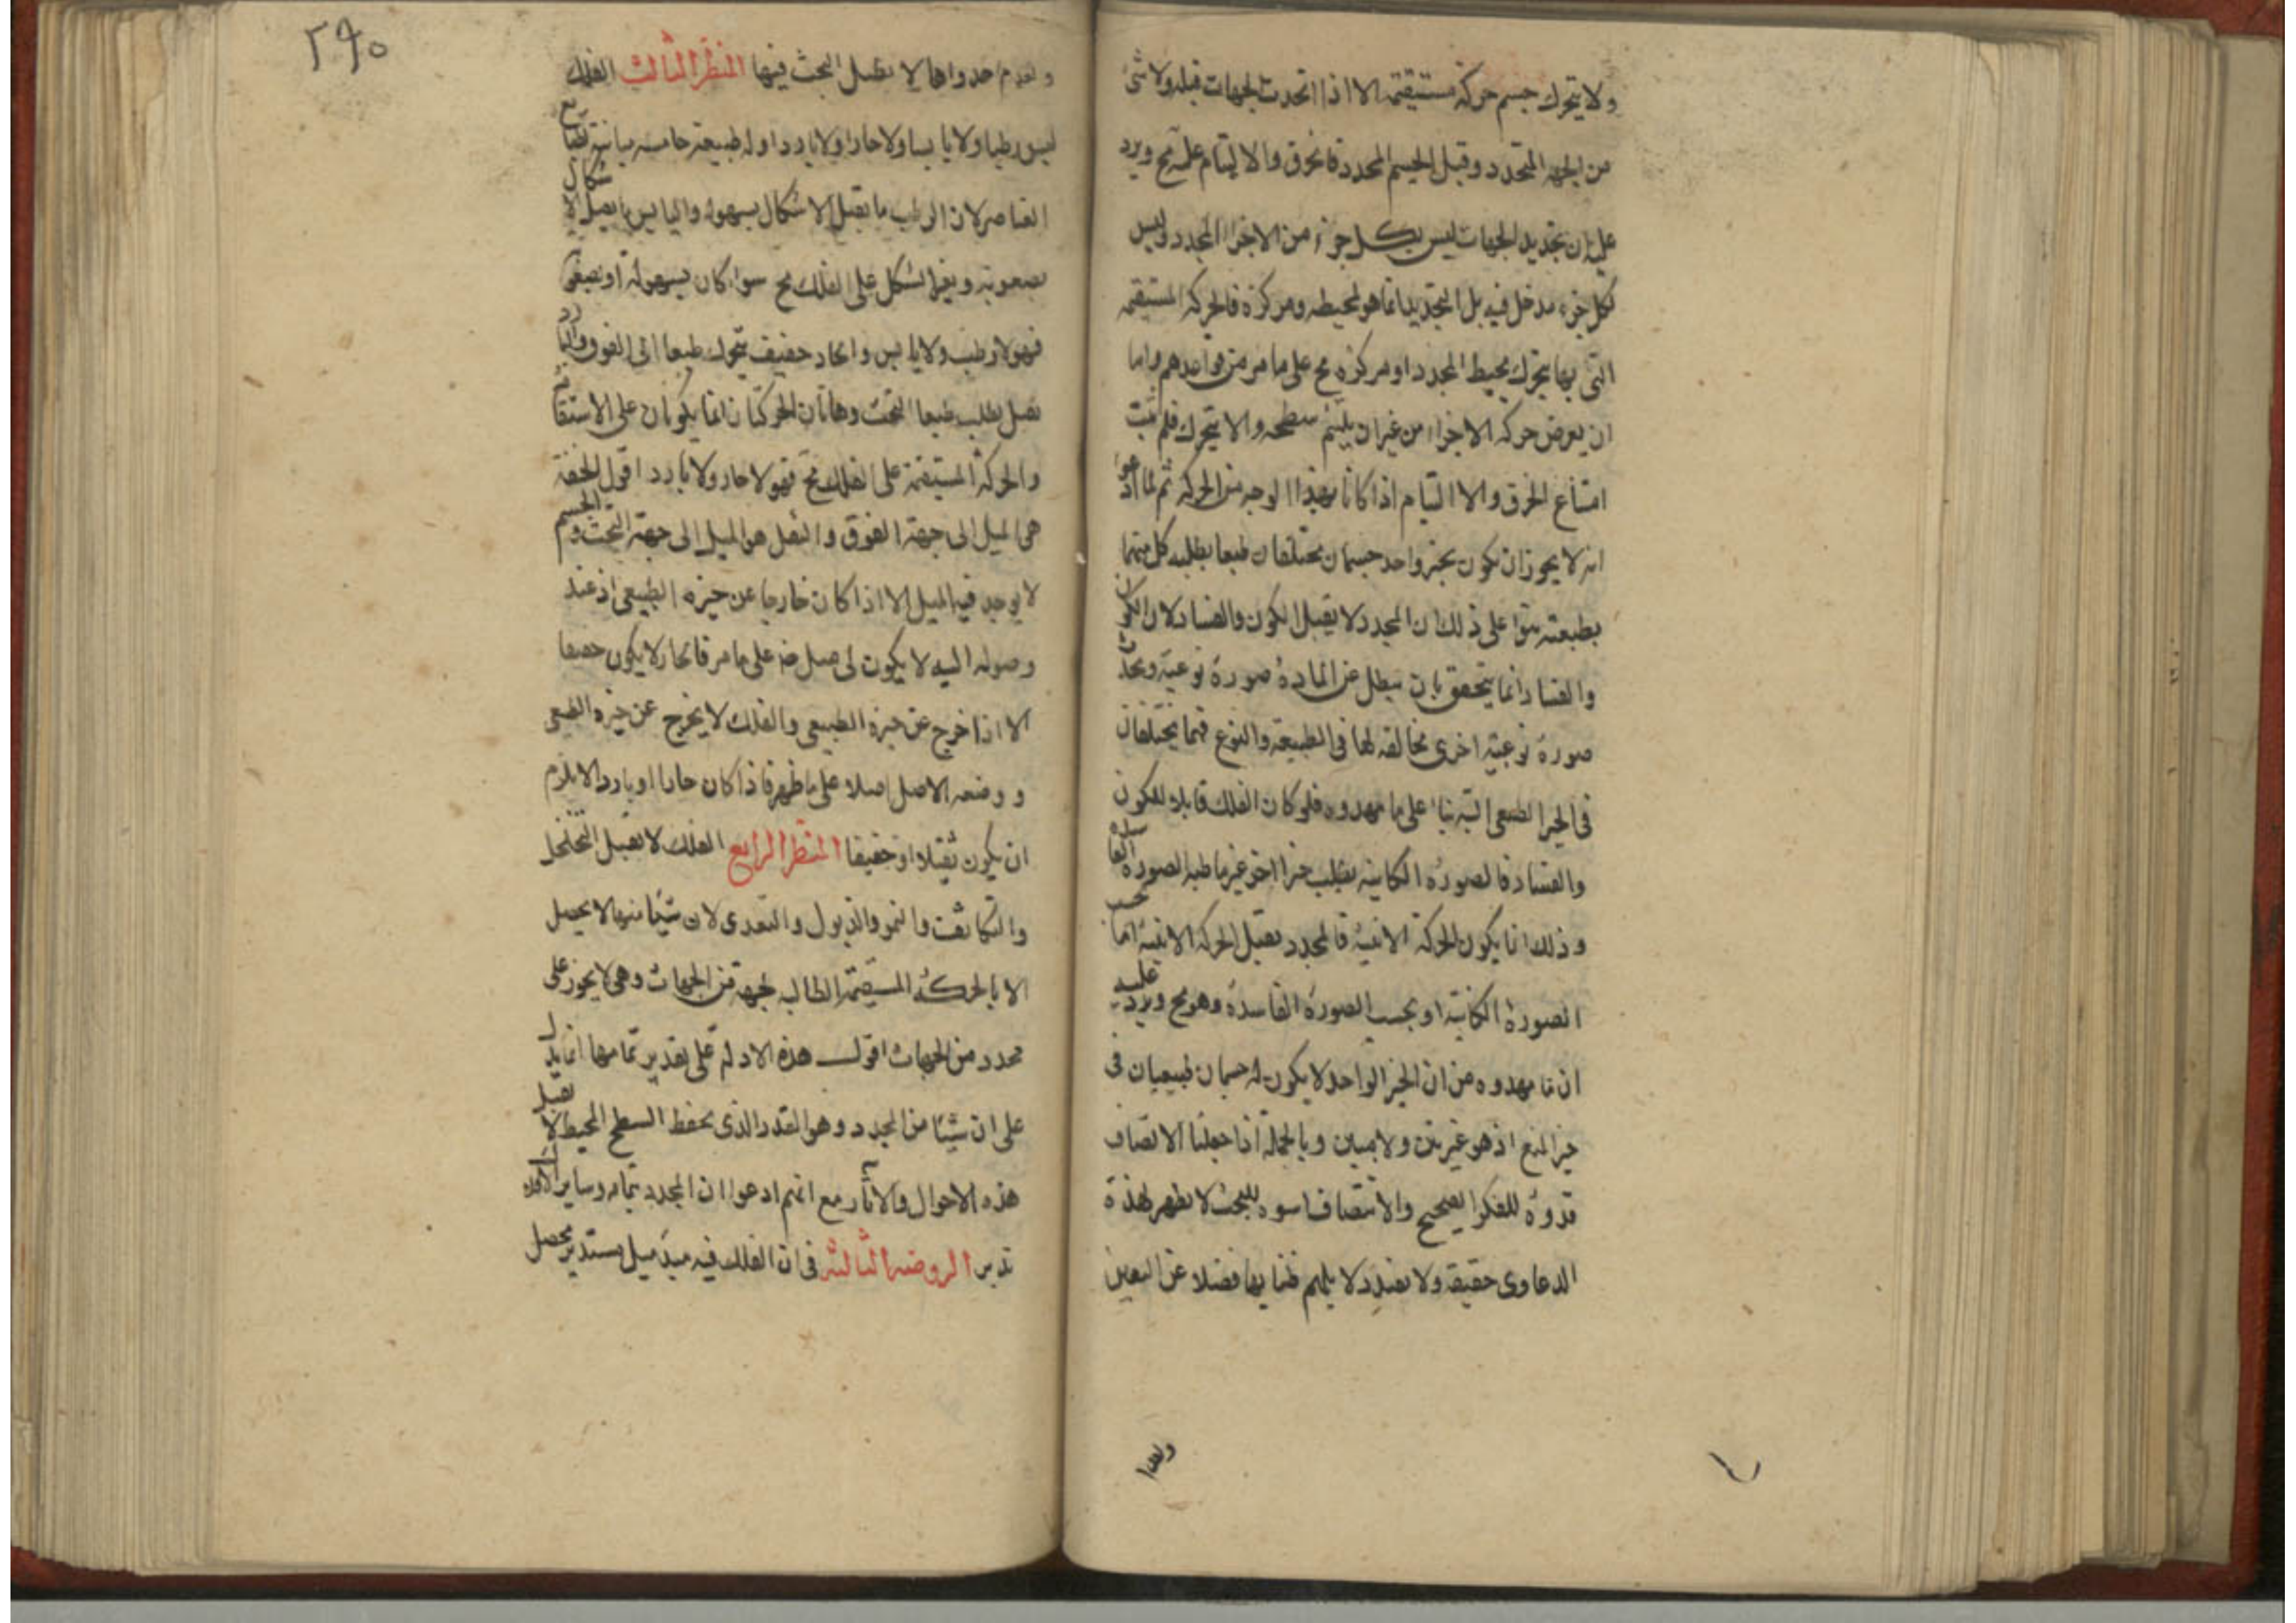 ولا يتحرك جسم حركة مستقيمة الا اذا اتحدت الجهات قبله ولا شئ
من الجهة المتحدد وقبل الجسم المحدد فالخرق والالتيام عليه مح ويرد
عليه ان تحديد الجهات ليس بكل جزء من الاجزاء المحدد وليس
لكل جزء مدخل فيه بل التحديد انما هو لمحيطه ومركزه فالحركة المستقيمة
التى بها يتحرك محيط المحدد او مركزه مح على ما مر من قواعدهم واما
ان يعرض حركة الاجزاء من غير ان سطحه والا يتحرك فلم يثبت
امتناع الخرق والاالتيام اذا كانا بهذا الوجه من الحركة ثم لما ادعوا
انه لا يجوز ان يكون بحيز واحد جسمان مختلفان طبعا يطلبه كل منهما
بطبعته بنوا على ذلك ان المحدد لا يقبل الكون والفساد لان الكون
والفساد انما يتحقق بان يبطل عن المادة صورة نوعية ويحدث
صورة نوعية اخرى مخالفة لها فى الطبيعة والنوع فهما يختلفان
فى الحيز الطبيعى البتة بناء على ما مهدوه فلو كان الفلك قابلا للكون
والفساد فالصورة الكاينة يطلب حيزا اخر غير ما طلبه الصورة الفاسدة
وذلك انما يكون الحركة الاينية فالمحدد يقبل الحركة الاينية اما بحسب
الصورة الكائنة او بحسب الصورة الفاسدة وهو مح ويرد عليه
ان ما مهدوه من ان الحيز الواحد لا يكون له جسمان طبيعيان فى
حيز المنع اذ هو غير بين ولا مبين وبالجملة اذا جعلنا الانصاف
قدوة للفكر الصحيح والانتصاف اسوه للبحث لا يظهر لهذة
الدعاوى حقيقة ولا يفيد دلايلهم ظنا بها فضلا عن اليقين
ولهذا
٢٩٠
ولعدم جدواها لا نطيل البحث فيها المنظر الثالث الفلك
ليس رطبا ولا يابسا ولا حارا ولا باردا وله طبيعة خامسة مباينة لطبايع
العناصر لان الرطب ما يقبل الاشكال بسهولة واليابس ما يقبل الاشكال
بصعوبة وتغير الشكل على الفلك مح سواء كان بسهولة او بصعوبة
فهو لا رطب ولا يابس والحار خفيف يتحرك طبعا الى الفوق والبارد
ثقيل يطلب طبعا التحت وهاتان الحركتان انما يكونان على الاستقامة
والحركة المستقيمة على الفلك مح فهو لا حار ولا بارد اقول الخفة
هى الميل الى جهة الفوق والثقل هو الميل الى جهة التحت والجسم
لا يوجد فيه الميل الا اذا كان خارجا عن حيزه الطبيعى اذ عند
وصوله اليه لا يكون له ميل منه على ما مر فالحار لا يكون خفيفا
الا اذا خرج عن حيزه الطبيعى والفلك لا يخرج عن حيزه الطبيعى
ووضعه الاصل اصلا على ما ظهر فاذا كان حارا او باردا لا يلزم
ان يكون ثقيلا او خفيفا المنظر الرابع الفلك لا يقبل التخلخل
والتكاثف والنمو والذبول والتغذى لان شيئا منها لا يحصل
الا بالحركة المستقيمة الطالبه لجهة من الجهات وهى لا يجوز على
محدد من الجهات اقول هذه الادلة على تقدير تمامها انما يدل
على ان شيئا من المحدد وهو القدر الذى يحفظ السطح المحيط لا يقبل
هذه الاحوال والاثار مع انهم ادعوا ان المحدد بتمامه وساير الافلاك
تدبر الروضة الثالثة فى ان الفلك فيه مبدء ميل مستدير يحصل